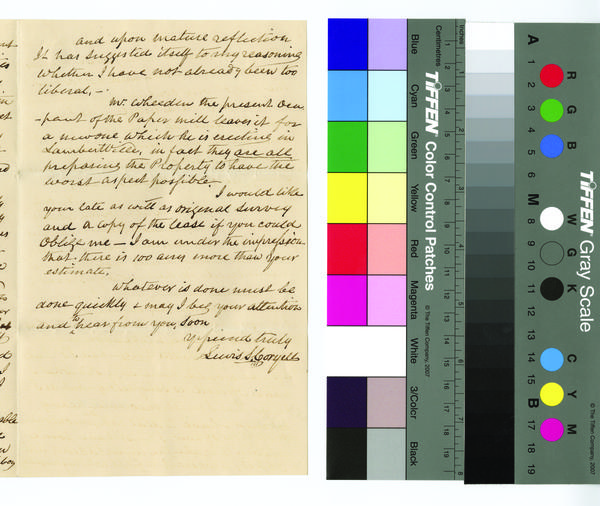 and upon mature reflection
It has suggested itself to my reasoning
whether I have not already been too
liberal. —
Mr. Wheeden the present occu
-pant of the Paper mill leaves it for
a new one which he is erecting in
Lambertville, in fact they are all
preparing the Property to have the
worst aspect possible
I would like
your late as well as original survey
and a copy of the lease if you could
Oblige me — I am under the impression
that there is 100 acres more than your
estimate.
Whatever is done must be
done quickly & may I beg your attention
and to hear from you soon
Yr friend truly
Lewis S. Coryell
able
Blue
Cyan
Green
Yellow
Red
Magenta
White
3/Color
Black
Inches
Centimetres
TIFFEN Color Control Patches
© The Tiffen Company, 2007
1 2 3 4 5 6 7 8
1 2 3 4 5 6 7 8 9 10 11 12 13 14 15 16 17 18 19
A 1 2 3 4 5 6 M 8 9 10 11 12 13 14 15 B 17 18 19
R G B
W G K
C Y M
TIFFEN Gray Scale
© The Tiffen Company, 2007